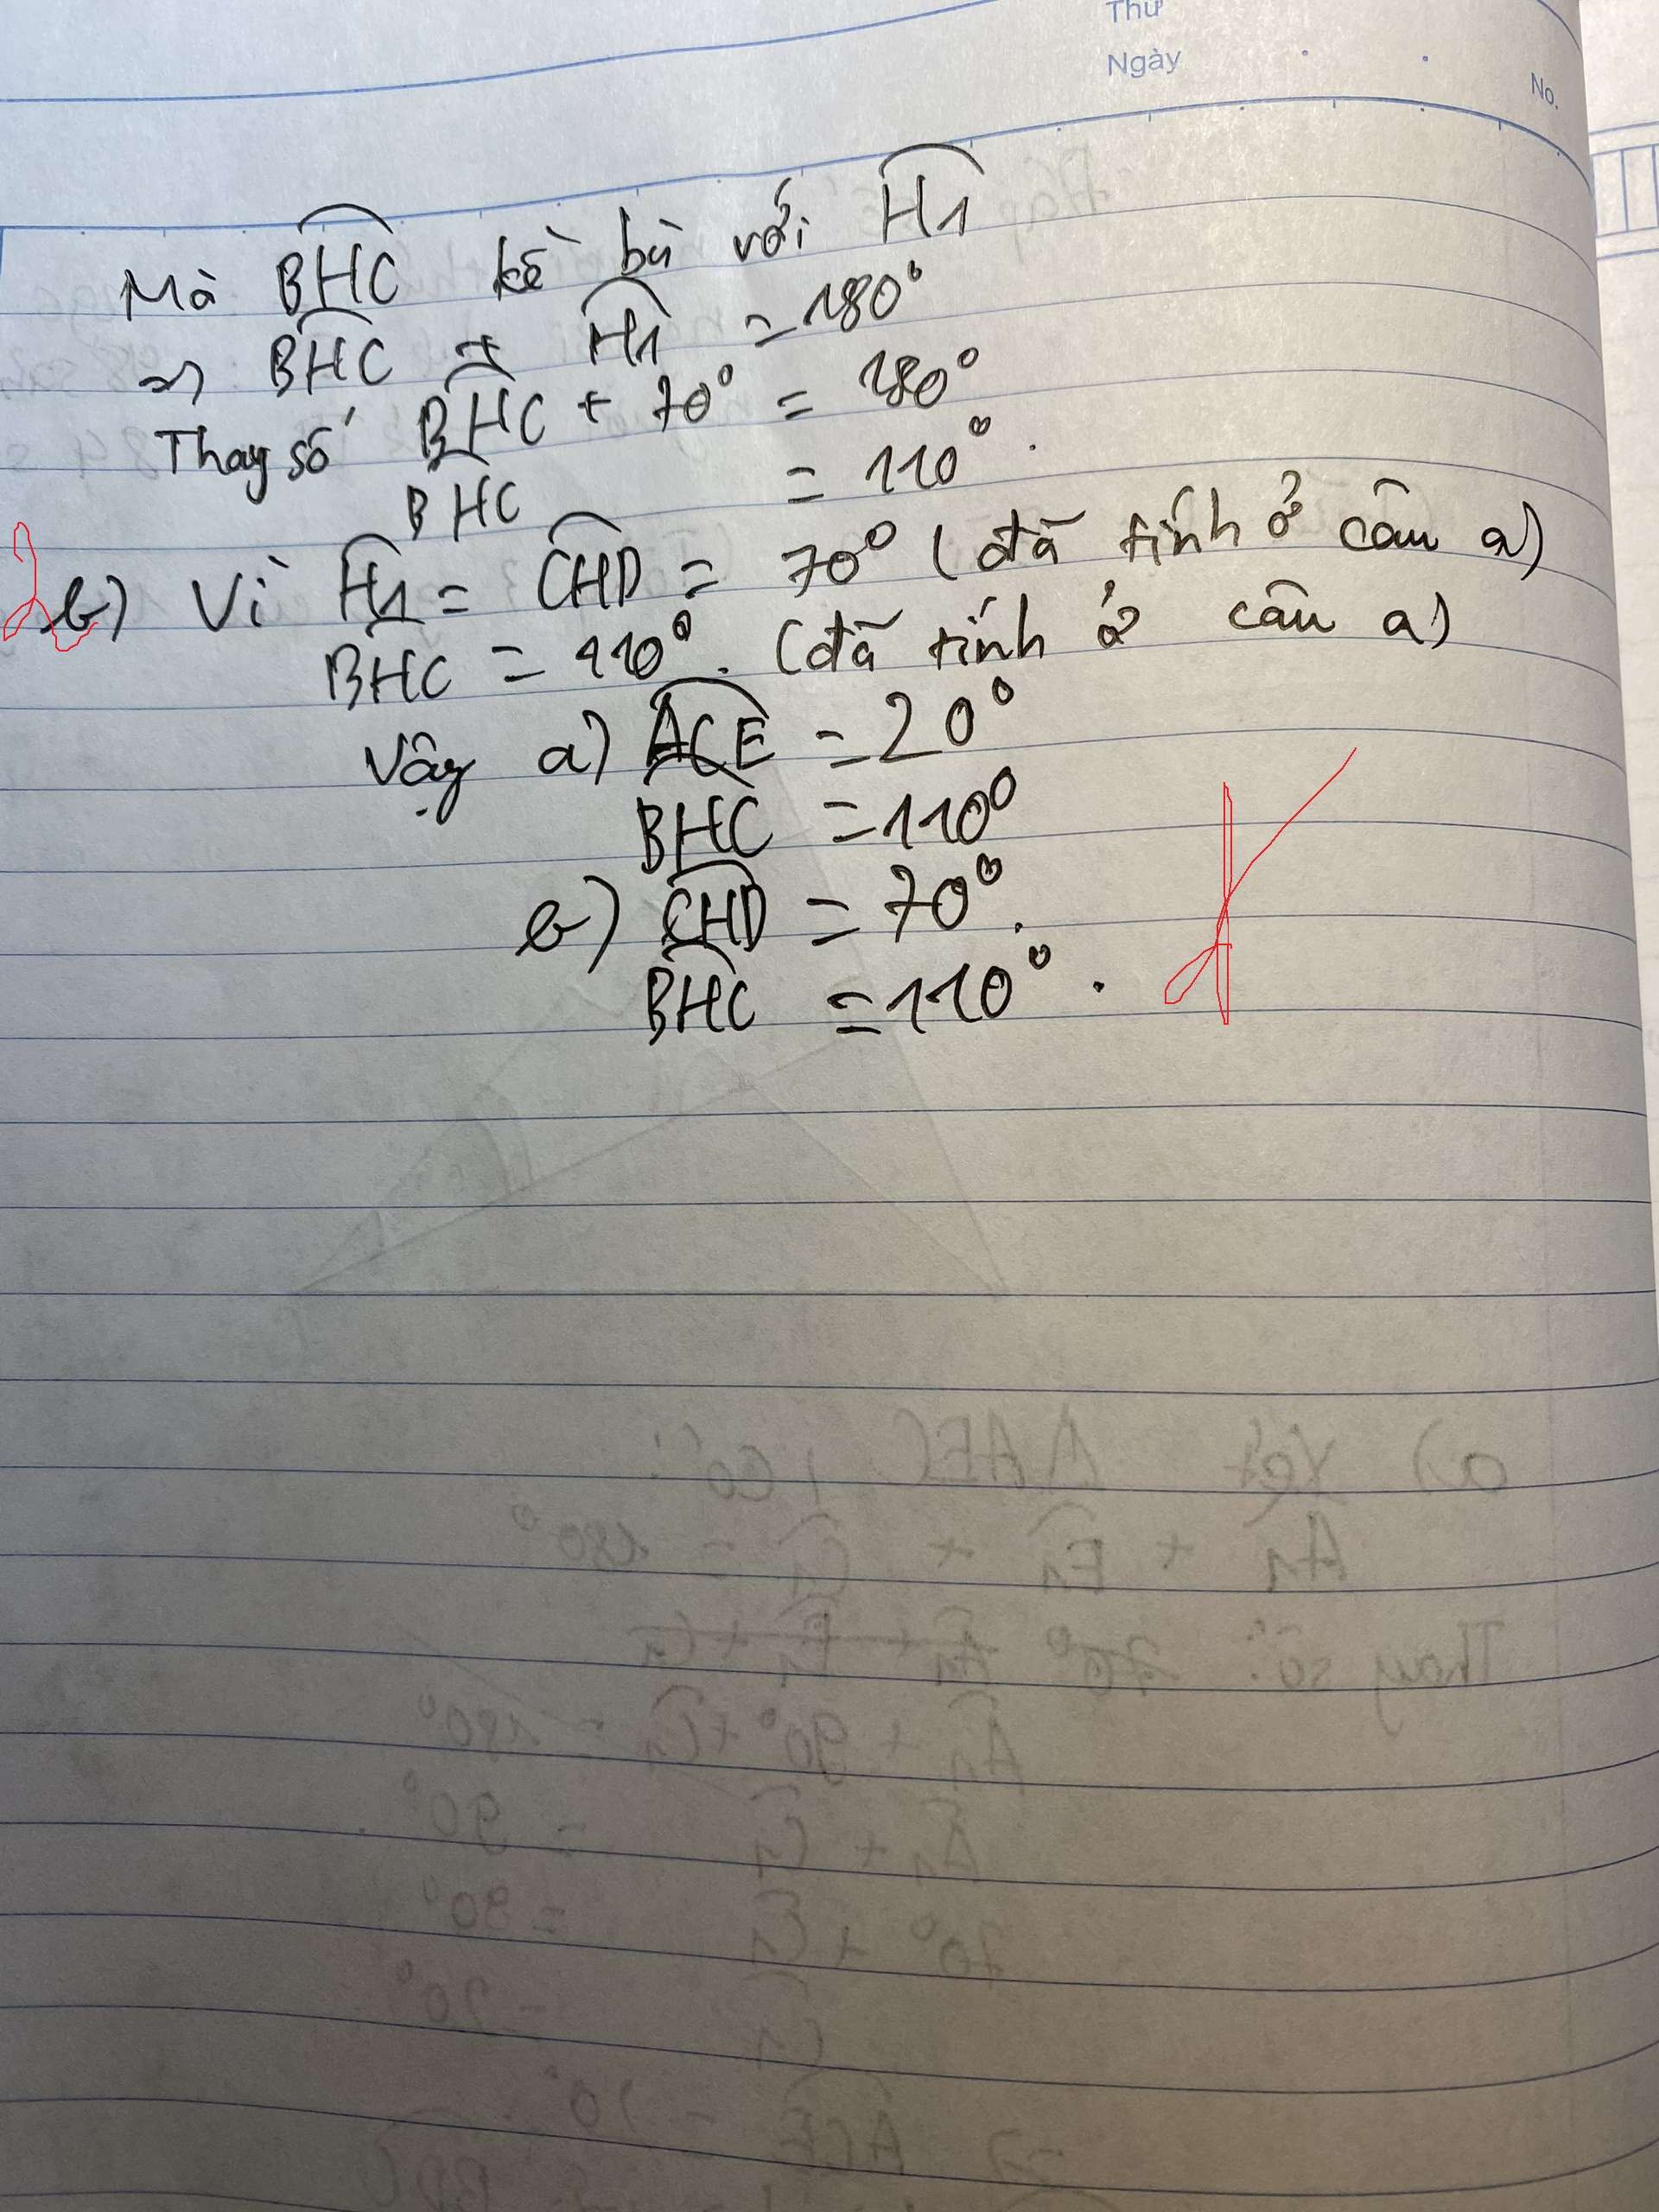 Thứ
Ngày
No.
Mà BHC kề bù với H1
=> BHC + H1 = 180°
Thay số BHC + 70° = 180°
BHC = 110°.
b) Vì H1 = CHD = 70° (đã tính ở câu a)
BHC = 110°. (đã tính ở câu a)
Vậy a) ACE = 20°
BHC = 110°
b) CHD = 70°.
BHC = 110°.